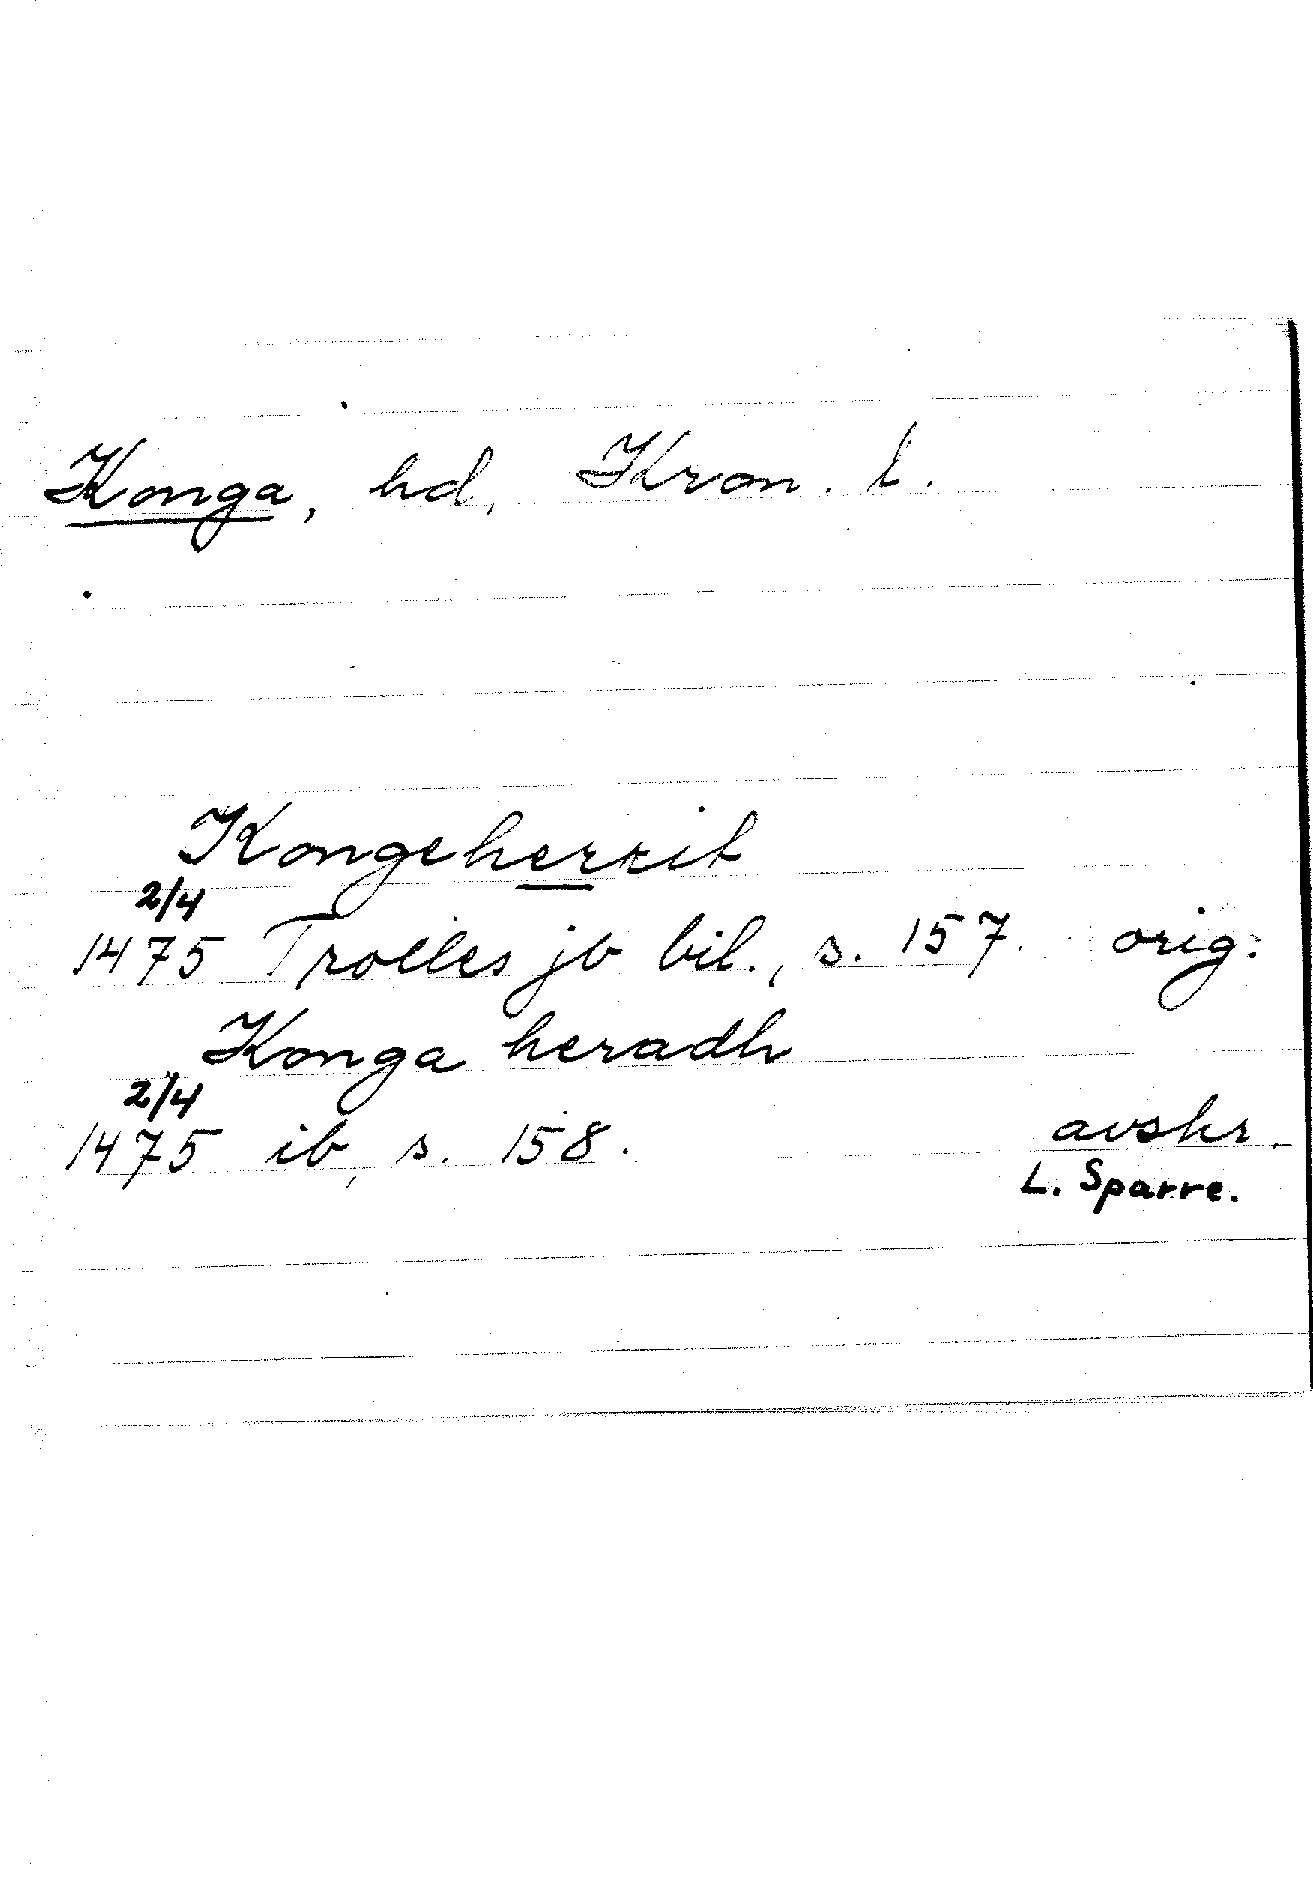 Konga, hd, Kron. l.
Kongeherrit
2/4
1475 Trolles jb bil., s. 157. orig.
Konga heradh
2/4
1475 ib, s. 158. avskr.
L. Sparre.